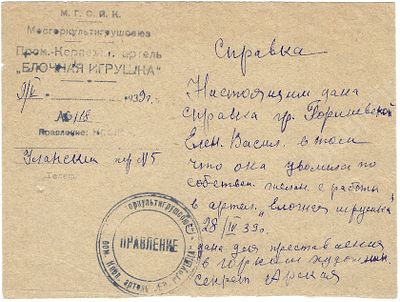 М. Г. С. П. К.
Мосгоркультигрушсоюз
Пром.-Кооперат. артель
"ЕЛОЧНАЯ ИГРУШКА"
1939г.
№
Правление:
Уланский пр №5
Телеф.
Справка
Настоящим дана
справка гр.
Елен. Васил. в том
что она уволилась по
собствен. желан. с работы
в артел. "елочная игрушка"
28/IV 39г.
дана для преставления
в горком художник.
секрет
горкультигрушсоюз
ПРАВЛЕНИЕ